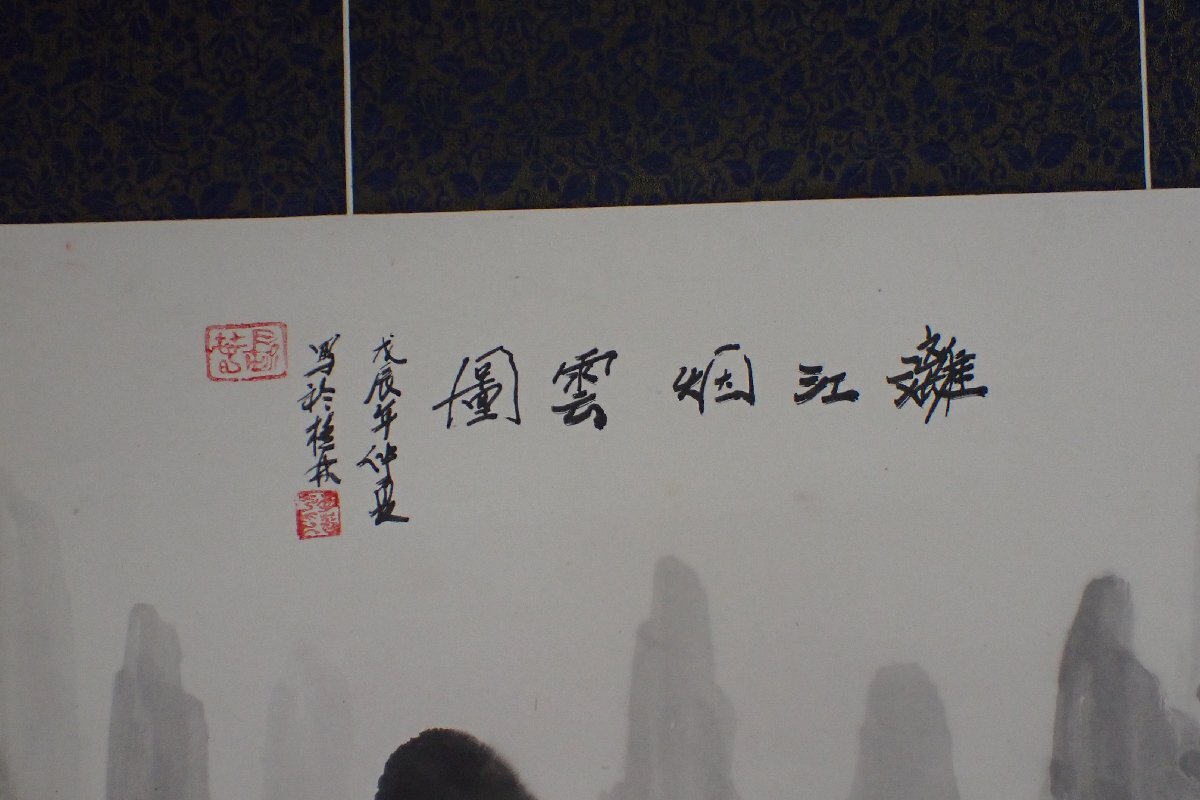 灕江烟雲圖
戊辰年仲夏
写於桂林